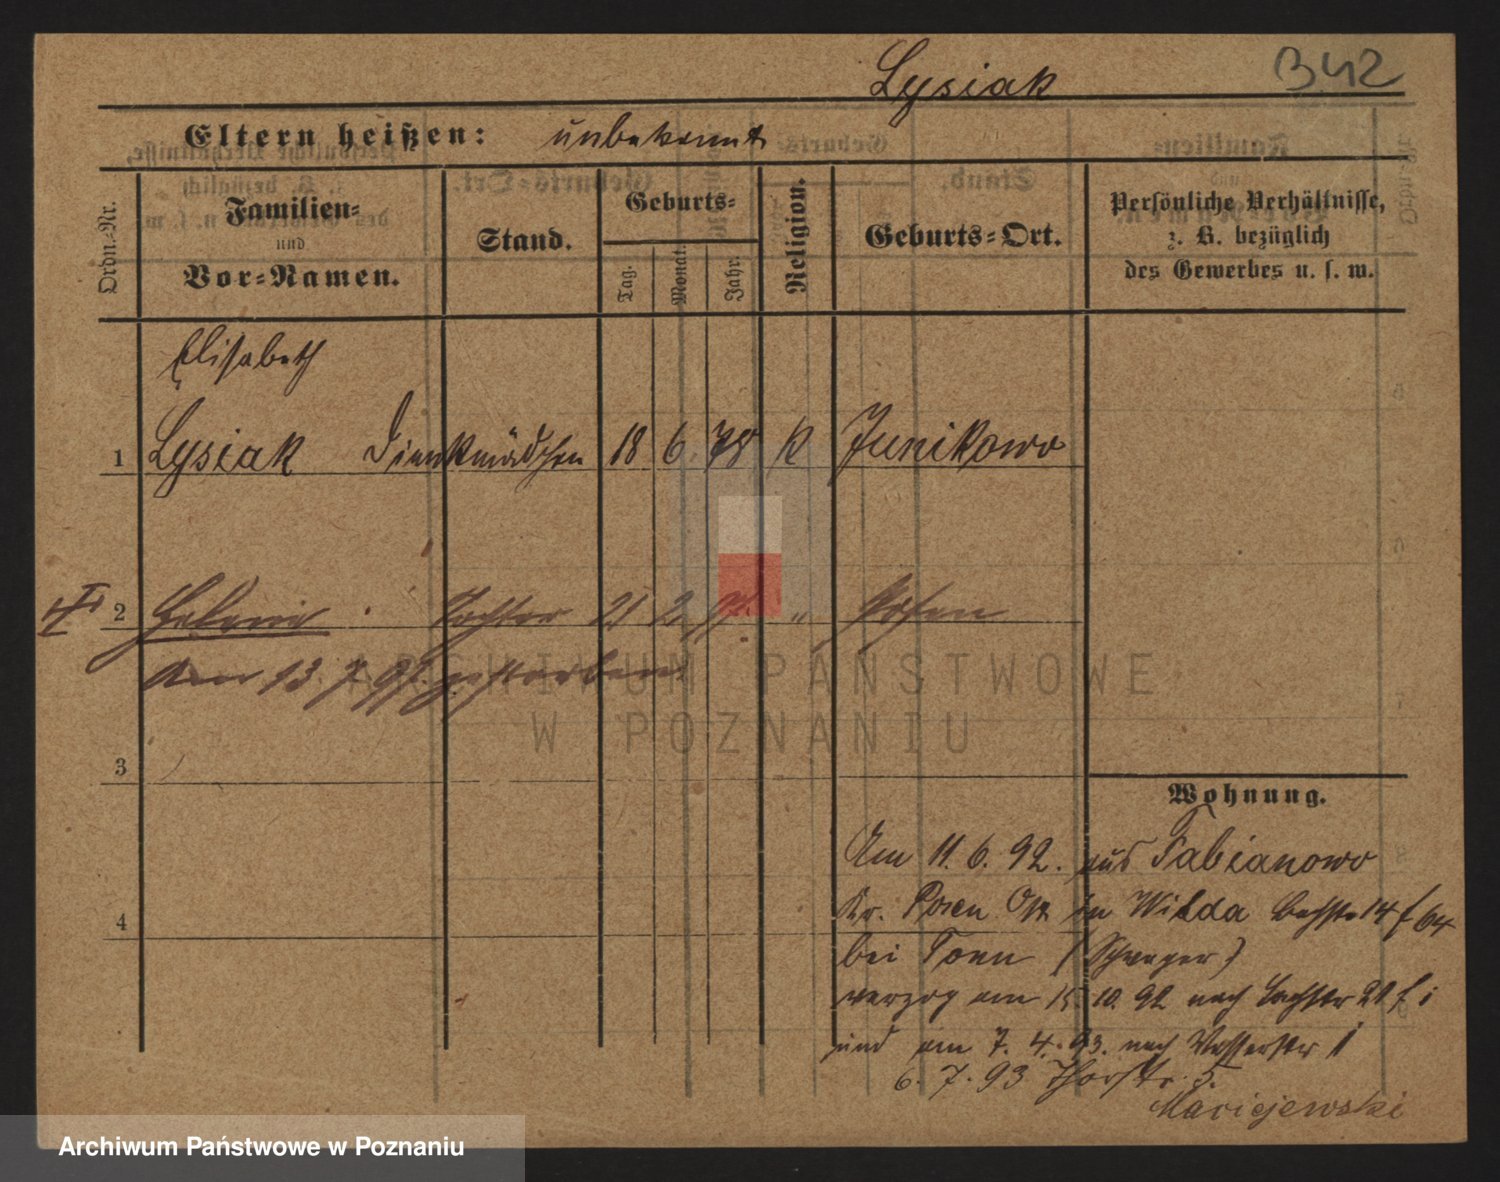 Lysiak
B42
Eltern heißen: unbekannt
Ordn.-Nr.
Familien-
und
Vor-Namen.
Stand.
Geburts-
Tag.
Monat.
Jahr.
Religion.
Geburts-Ort.
Persönliche Verhältnisse,
z. B. bezüglich
des Gewerbes u. s. w.
Elisabeth
1 Lysiak Dienstmädchen 18 6 78 K Junikowo
2 Tochter 21 2 97. " Posen
am 13. 7. 97. gestorben
3
4
Wohnung.
Am 11. 6. 92. aus Fabianowo
Kr. Posen Ost in Wilda 14 64
bei Tonn (Schwager)
verzog am 15. 10. 92 nach 21
und am 7. 4. 93. nach Wasserstr 1
6. 7. 93 Thorstr. 5.
Maciejewski
ARCHIWUM PAŃSTWOWE
W POZNANIU
Archiwum Państwowe w Poznaniu